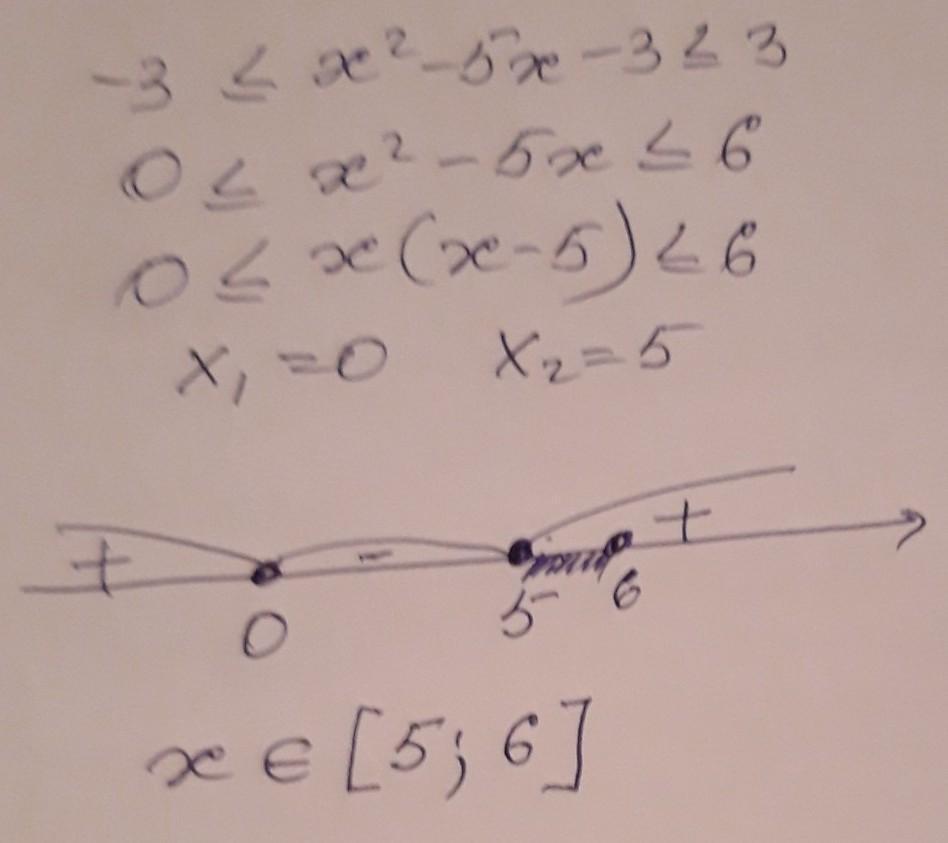 -3 ≤ x² - 5x - 3 ≤ 3
0 ≤ x² - 5x ≤ 6
0 ≤ x(x-5) ≤ 6
x₁ = 0 x₂ = 5
+ - +
0 5 6
x ∈ [5; 6]